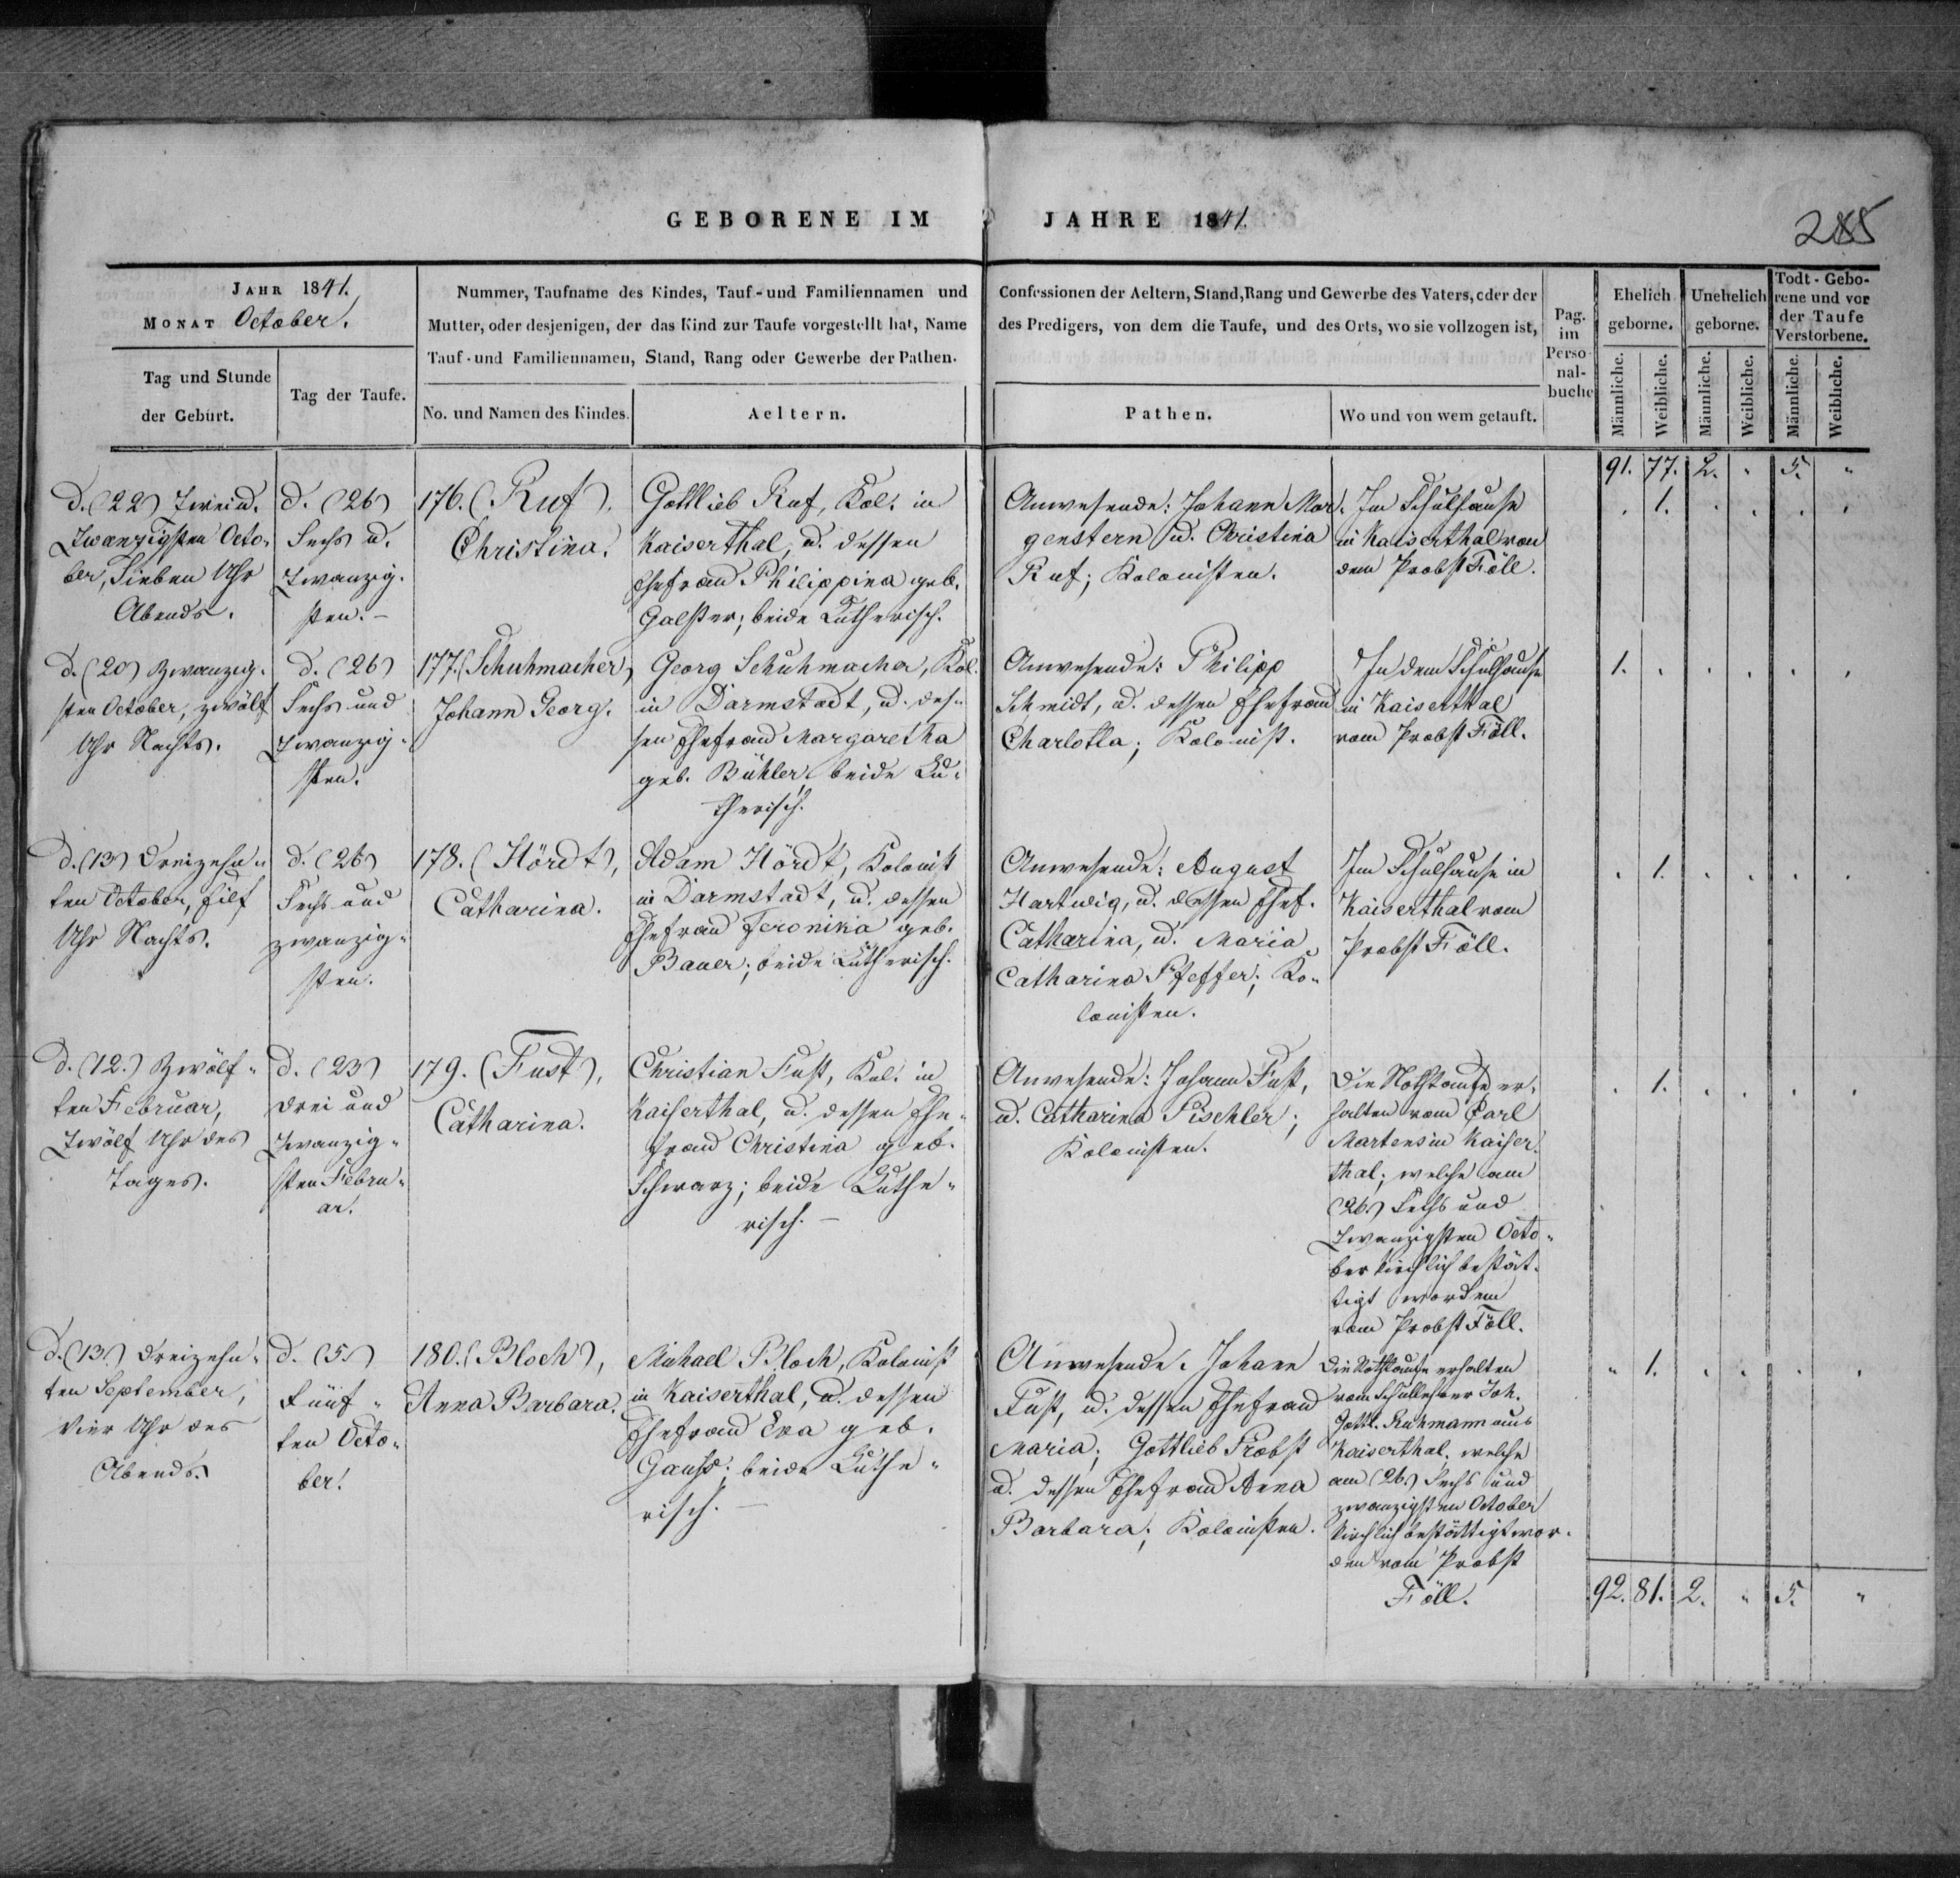 GEBORENE IM JAHRE 1841.
285
JAHR 1841.
MONAT October.
Tag und Stunde
der Geburt.
Tag der Taufe.
Nummer, Taufname des Kindes, Tauf- und Familiennamen und
Mutter, oder desjenigen, der das Kind zur Taufe vorgestellt hat, Name
Tauf- und Familiennamen, Stand, Rang oder Gewerbe der Pathen.
No. und Namen des Kindes.
Aeltern.
Confessionen der Aeltern, Stand, Rang und Gewerbe des Vaters, oder der
des Predigers, von dem die Taufe, und des Orts, wo sie vollzogen ist,
Pathen.
Wo und von wem getauft.
Pag.
im
Perso-
nal-
buche
Ehelich
geborne.
Unehelich
geborne.
Todt-Gebo-
rene und vor
der Taufe
Verstorbene.
Männliche.
Weibliche.
Männliche.
Weibliche.
Männliche.
Weibliche.
91. 77. 2. " 5. "
d. (22) Zwei u.
Zwanzigsten Octo-
ber, Sieben Uhr
Abends.
d. (26)
Sechs u.
Zwanzig-
sten. –
176. (Ruf),
Christina.
Gottlieb Ruf, Kol. in
Kaiserthal, u. dessen
Ehefrau Philippina geb.
Galster; beide Lutherisch.
Anwesende: Johann Mor-
genstern u. Christina
Ruf; Kolonisten.
Im Schulhause
in Kaiserthal von
dem Probst Föll.
. 1. . . . .
d. (20) Zwanzig-
sten October, zwölf
Uhr Nachts.
d. (26)
Sechs und
Zwanzig-
sten.
177. (Schuhmacher)
Johann Georg.
Georg Schuhmacher, Kol.
in Darmstadt, u. des-
sen Ehefrau Margaretha
geb. Bühler, beide Lu-
therisch.
Anwesende: Philipp
Schmidt, u. dessen Ehefrau
Charlotta; Kolonist.
In dem Schulhause
in Kaiserthal
vom Probst Föll.
1. . . . . .
d. (13) Dreizehn-
ten October, Eilf
Uhr Nachts.
d. (26)
Sechs und
zwanzig-
sten.
178. (Hördt),
Catharina.
Adam Hördt, Kolonist
in Darmstadt, u. dessen
Ehefrau Feronika geb.
Bauer; beide Lutherisch.
Anwesende: August
Hartwig, u. dessen Ehef.
Catharina, u. Maria
Catharina Pfeffer; Ko-
lonisten.
Im Schulhause in
Kaiserthal vom
Probst Föll.
. 1. . . . .
d. (12.) Zwölf-
ten Februar,
Zwölf Uhr des
Tages.
d. (23)
Drei und
Zwanzig-
sten Febru-
ar.
179. (Fust),
Catharina.
Christian Fust, Kol. in
Kaiserthal, u. dessen Ehe-
frau Christina geb.
Schwarz; beide Luthe-
risch. –
Anwesende: Johann Fust,
u. Catharina Pischler;
Kolonisten.
Die Nothtaufe er-
halten vom Carl
Martens in Kaiser-
thal; welche am
(26.) Sechs und
Zwanzigsten Octo-
ber kirchlich bestät-
tigt worden
vom Probst Föll.
. 1. . . . .
d. (13.) Dreizehn-
ten September,
Vier Uhr des
Abends.
d. (5.)
Fünf-
ten Octo-
ber.
180. (Bloch),
Anna Barbara.
Michael Bloch, Kolonist
in Kaiserthal, u. dessen
Ehefrau Eva geb.
Gauß; beide Luthe-
risch. –
Anwesende: Johann
Fust, u. dessen Ehefrau
Maria; Gottlieb Probst
u. dessen Ehefrau Anna
Barbara; Kolonisten.
Die Nothtaufe erhalten
vom Schullehrer Joh.
Gottl. Ruhmann aus
Kaiserthal, welche
am (26.) Sechs und
zwanzigsten October
kirchlich bestättigt wor-
den vom Probst
Föll.
" 1. . . . .
92. 81. 2. " 5. "